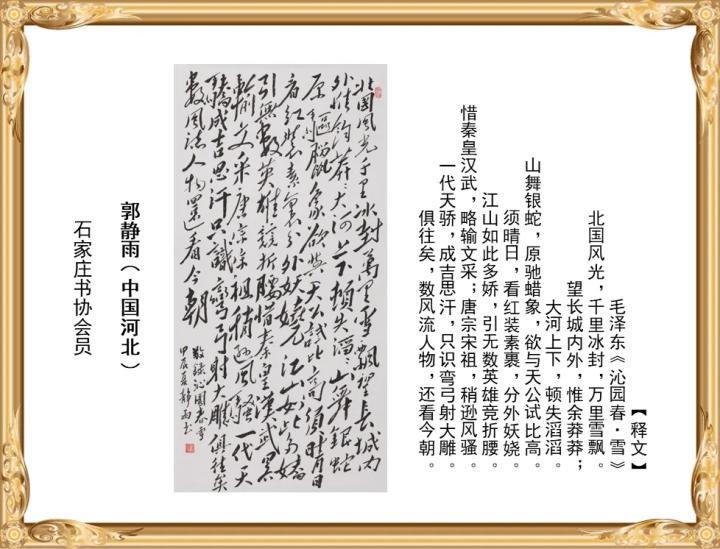 【释文】
毛泽东《沁园春·雪》
北国风光，千里冰封，万里雪飘。
望长城内外，惟余莽莽；
大河上下，顿失滔滔。
山舞银蛇，原驰蜡象，欲与天公试比高。
须晴日，看红装素裹，分外妖娆。
江山如此多娇，引无数英雄竞折腰。
惜秦皇汉武，略输文采；唐宗宋祖，稍逊风骚。
一代天骄，成吉思汗，只识弯弓射大雕。
俱往矣，数风流人物，还看今朝。
北國風光千里冰封萬里雪飄望長城内
外惟余莽〻大河上下頓失滔〻山舞銀蛇
原驅臘象欲與天公試比高須晴日
看紅裝素裹分外妖嬈江山如此多嬌
引無數英雄競折腰惜秦皇漢武畧
輸文采唐宗宋祖稍遜風騷一代天
驕成吉思汗只識彎弓射大雕俱往矣
數風流人物還看今朝
敬録沁園春雪
甲辰夏靜雨书
郭静雨（中国河北）
石家庄书协会员